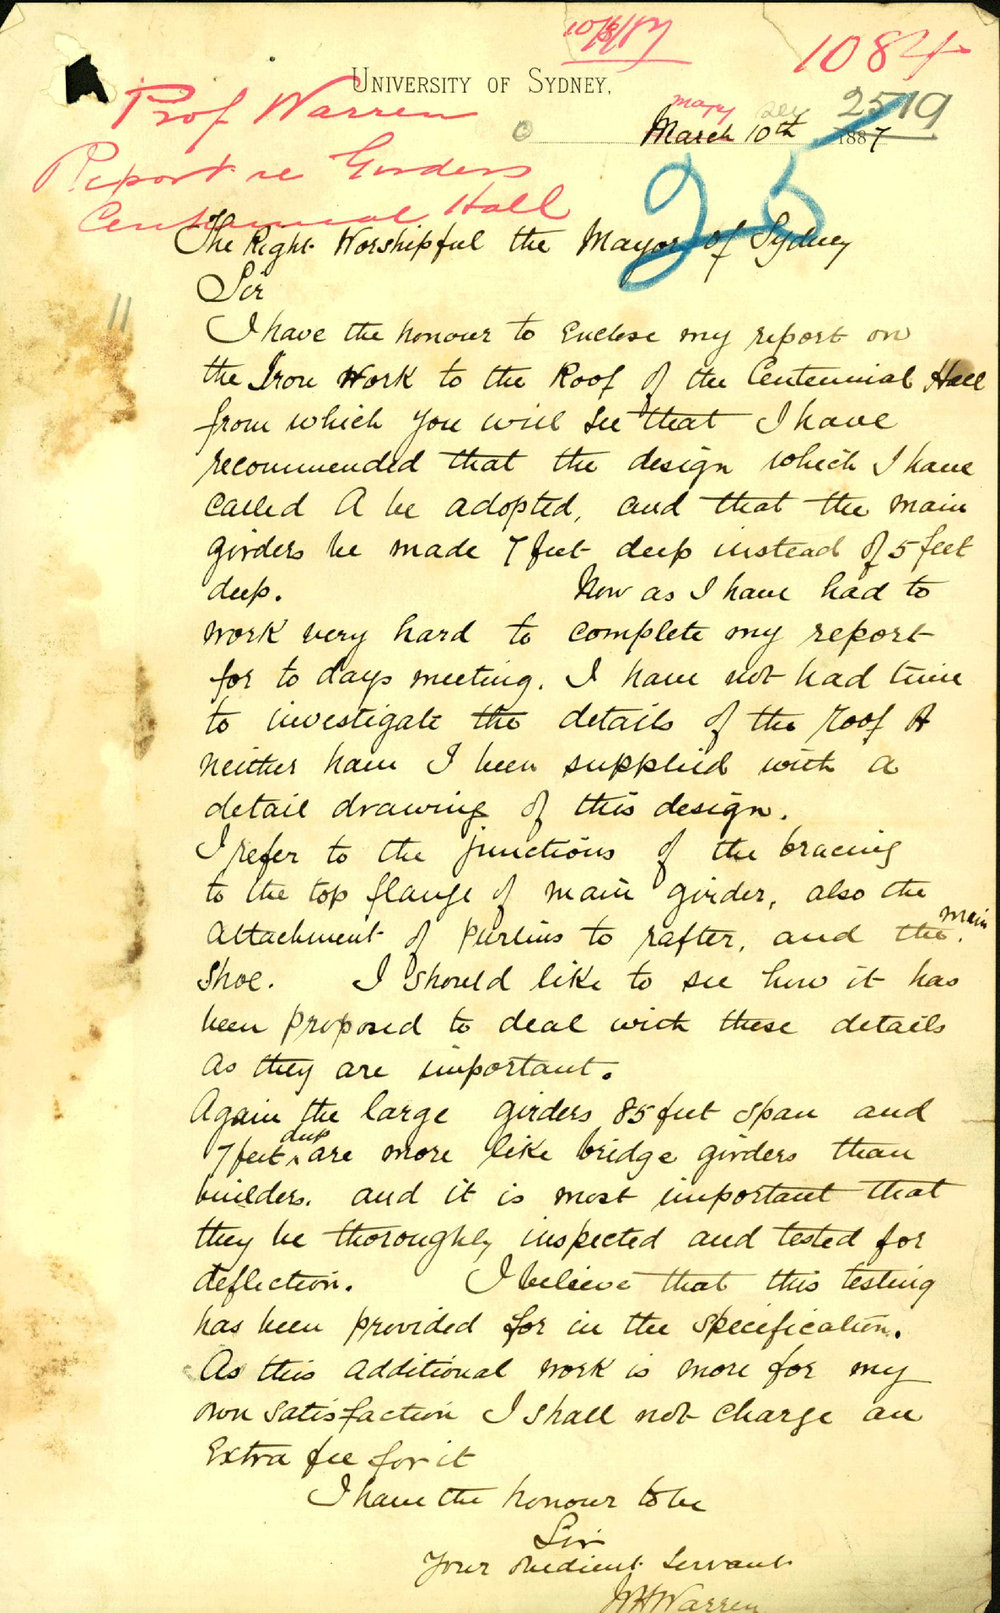 10/8/87
1084
UNIVERSITY OF SYDNEY.
Prof Warren
2519
March 10th 1887
Report re Girders
25
Centennial Hall
The Right Worshipful the Mayor of Sydney
Sir
I have the honour to Enclose my report on
the Iron Work to the Roof of the Centennial Hall
from which you will see that I have
recommended that the design which I have
called A be adopted, and that the main
girders be made 7 feet deep instead of 5 feet
dep. Now as I have had to
work very hard to complete my report
for to days meeting. I have not had time
to investigate the details of the roof A
neither have I been supplied with a
detail drawing of this design.
I refer to the junctions of the bracing
to the top flange of main girder, also the
attachment of purlins to rafter, and the main
shoe. I should like to see how it has
been proposed to deal with these details
as they are important.
Again the large girders 85 feet span and
7 feet deep are more like bridge girders than
builders. and it is most important that
they be thoroughly inspected and tested for
deflection. I believe that this testing
has been provided for in the specification.
As this additional work is more for my
own satisfaction I shall not charge an
Extra fee for it
I have the honour to be
Sir
Your obedient Servant
WHWarren